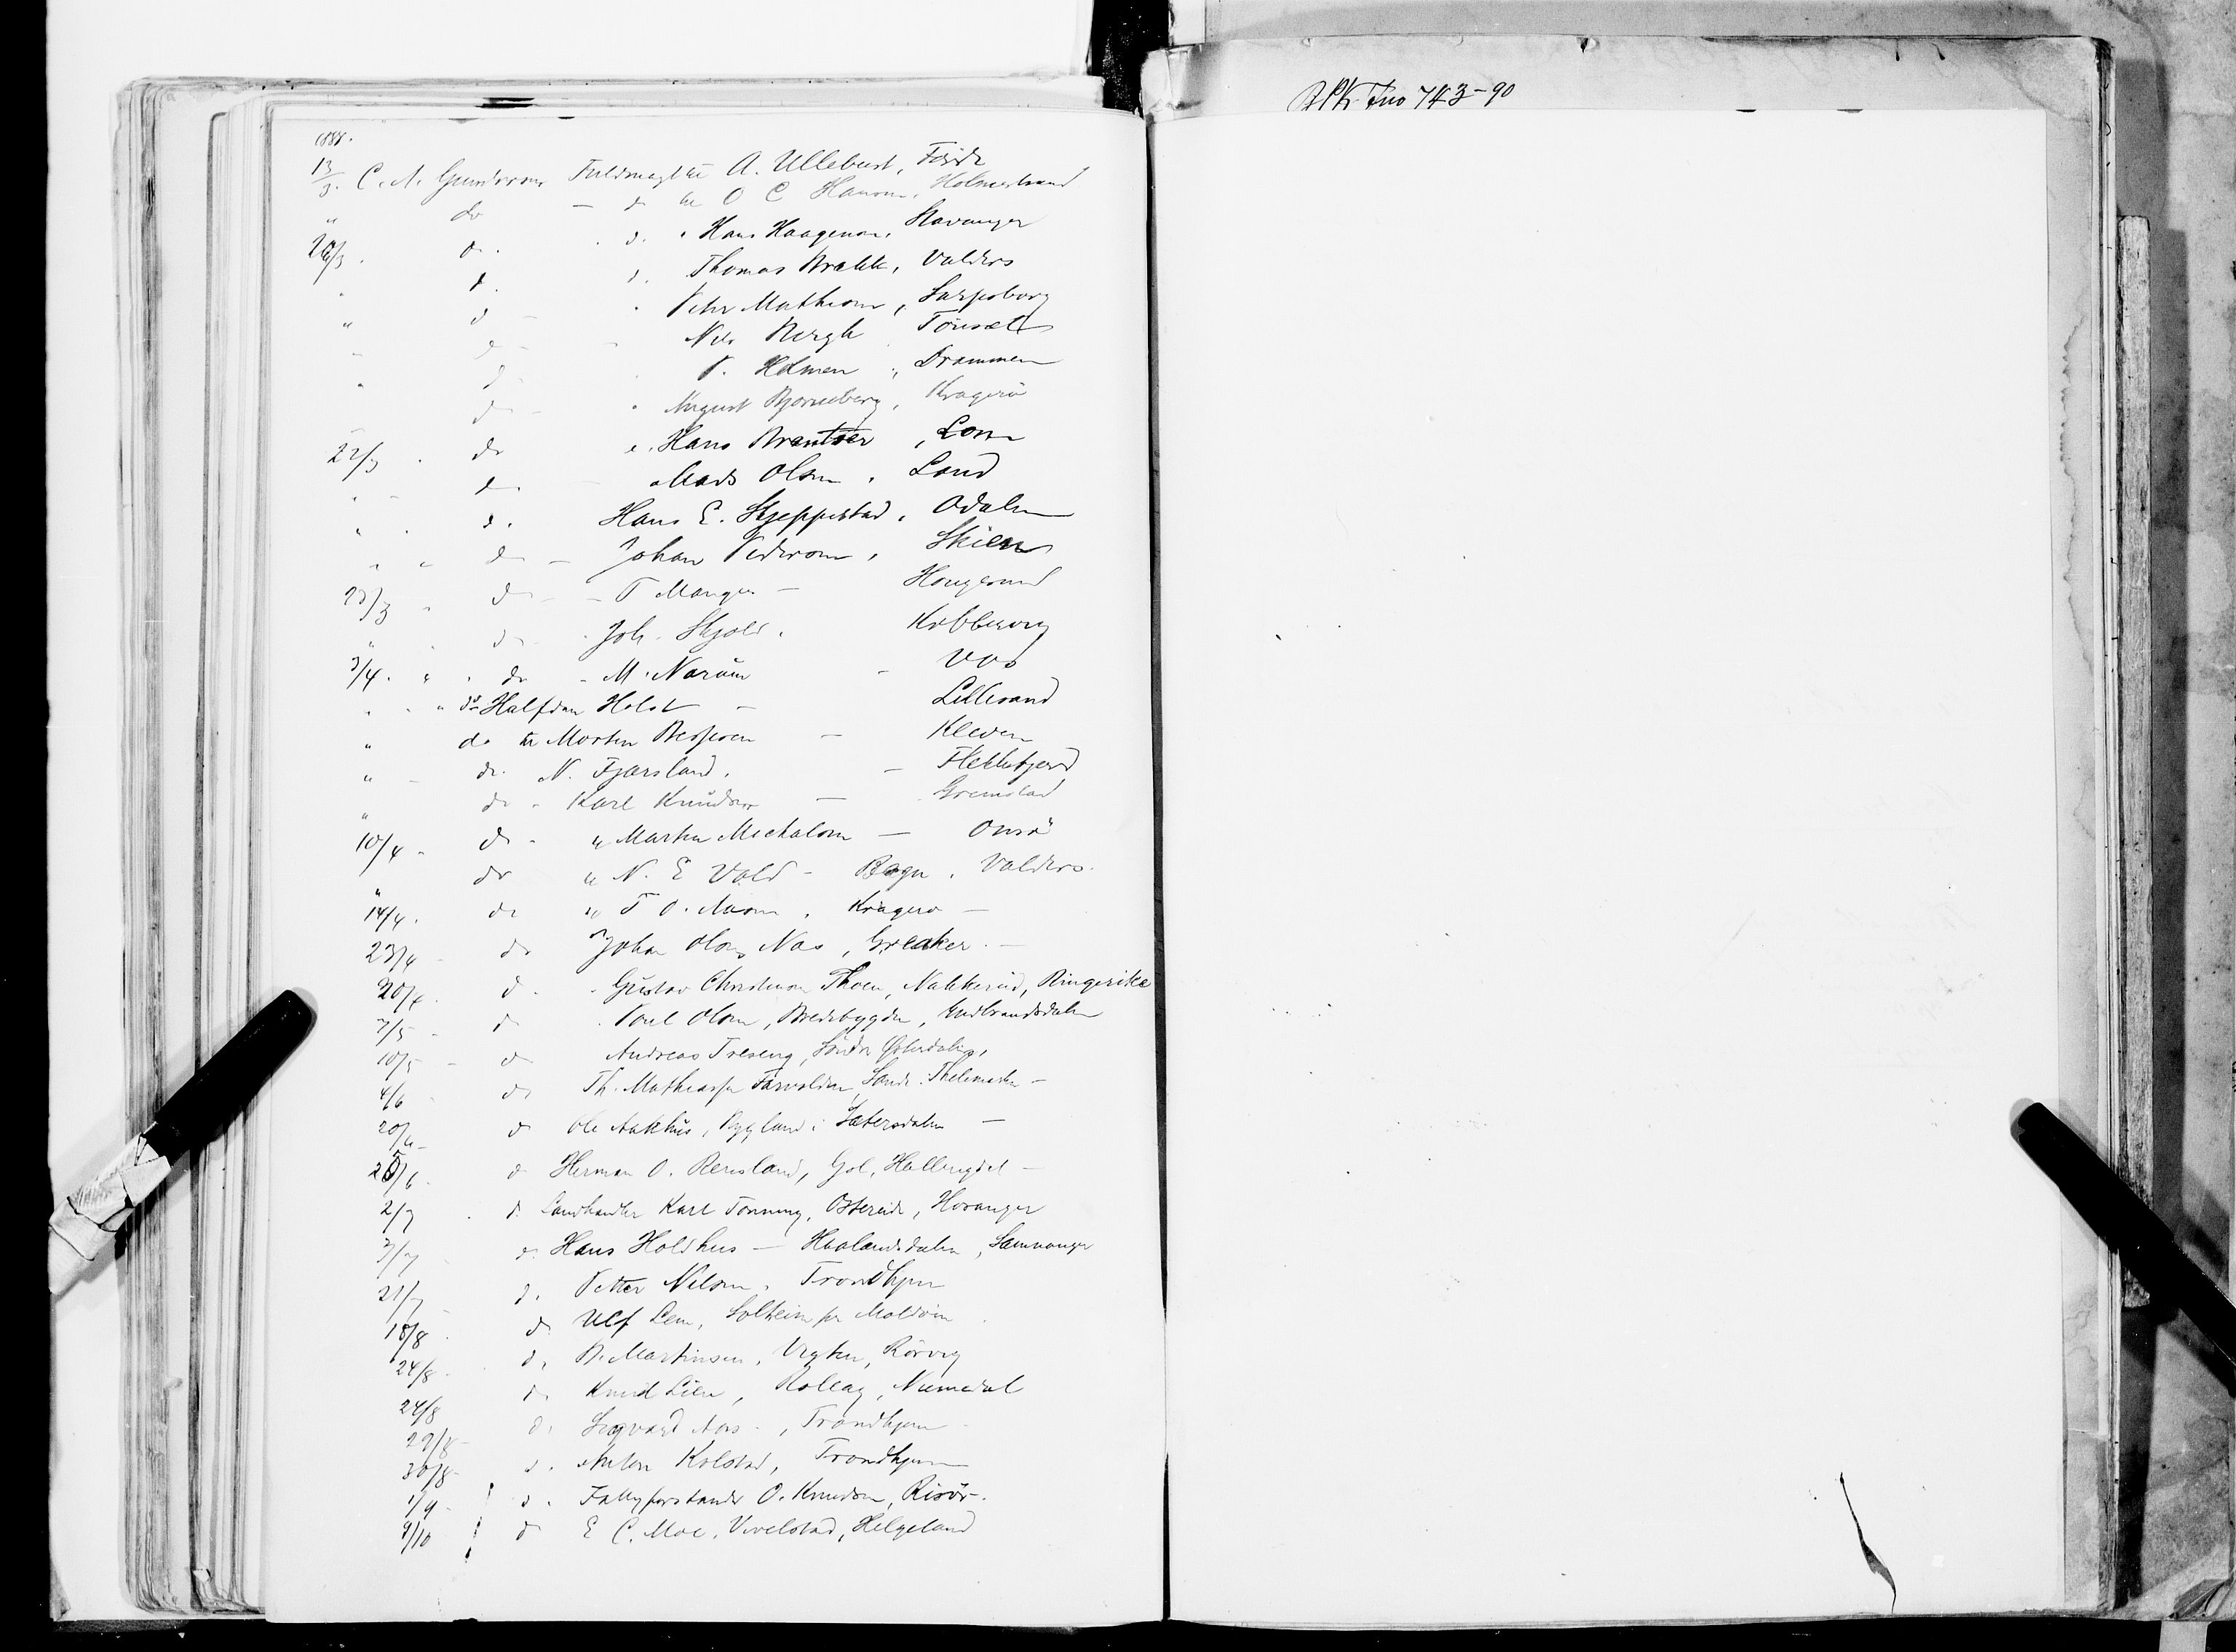 1888.
13/3. C. A. Gundersens Fuldmagt til A. Ullebust, Förde
" do - do til O C Hansen, Holmestrand
20/3. do. d. " Hans Haagensen, Stavanger
d. d. Thomas Brakke, Valders
" d - Peter Mathisen, Sarpsborg
" d - Nils Bergh Tönset
" d - P. Holmen, Drammen
d - " August Bjorneberg, Kragerö
22/3 . do ". Hans Brantser, Lom
" - d. Mads Olsen, Land
" . d. Hans E. Skjeppestad, Odalen
" " d - Johan Pedersen, Skien
23/3 " d - - T Manger - Haugesund
" d - Joh. Skjold.
3/4. " " do - M. Narum - Vos
" do Halfdan Holst - Lillesand
" do til Morten Berntsen - Kleven
" - do. N. Fjærsland. - Flekkefjord
" do " Karl Knudsen - Grimstad
10/4 - d - " Marten Michalsen - Onsö
" do " N. E Vold - Bagn, Valders.
14/4. do " T O. Aasen, Kragerø -
23/4 - do Johan Olsen Næs, Greaker. -
20/4. d. " Gustav Christensen Thoen, Nakkerud, Ringerike
7/5 - d Poul Olsen, Bredebygden, Gudbrandsdalen
10/5 - d Andreas Treseng, Söndre Østerdalen,
4/6 - do Th. Mathiassen Farvolden, Sande. Thelemarken -
20/6 - d Ole Aakhus, Bygland i Sætersdalen -
25/6. d Herman O. Rensland, Gol, Hallingdal -
2/7 . d. Landhandler Karl Tönning, Ostereide, Hosanger
3/7 d. Hans Holdhus - Haalandsdalen, Samnanger
21/7 - d. Petter Nilsen, Trondhjem
18/8 . d. Ulf Lem, Solheim pr Moldöen
24/8 . d. B. Martinsen, Vegten, Rörvig
24/8 d. Knud Lien, Rollag, Numedal
29/8 - d. Sigvard Aas -, Trondhjem -
30/8 - d. Anton Kolstad, Trondhjem
1/9 - d. Fattigforstander O. Knudsen, Risör -.
9/10 d E C. Moe, Vevelstad, Helgeland
743-90